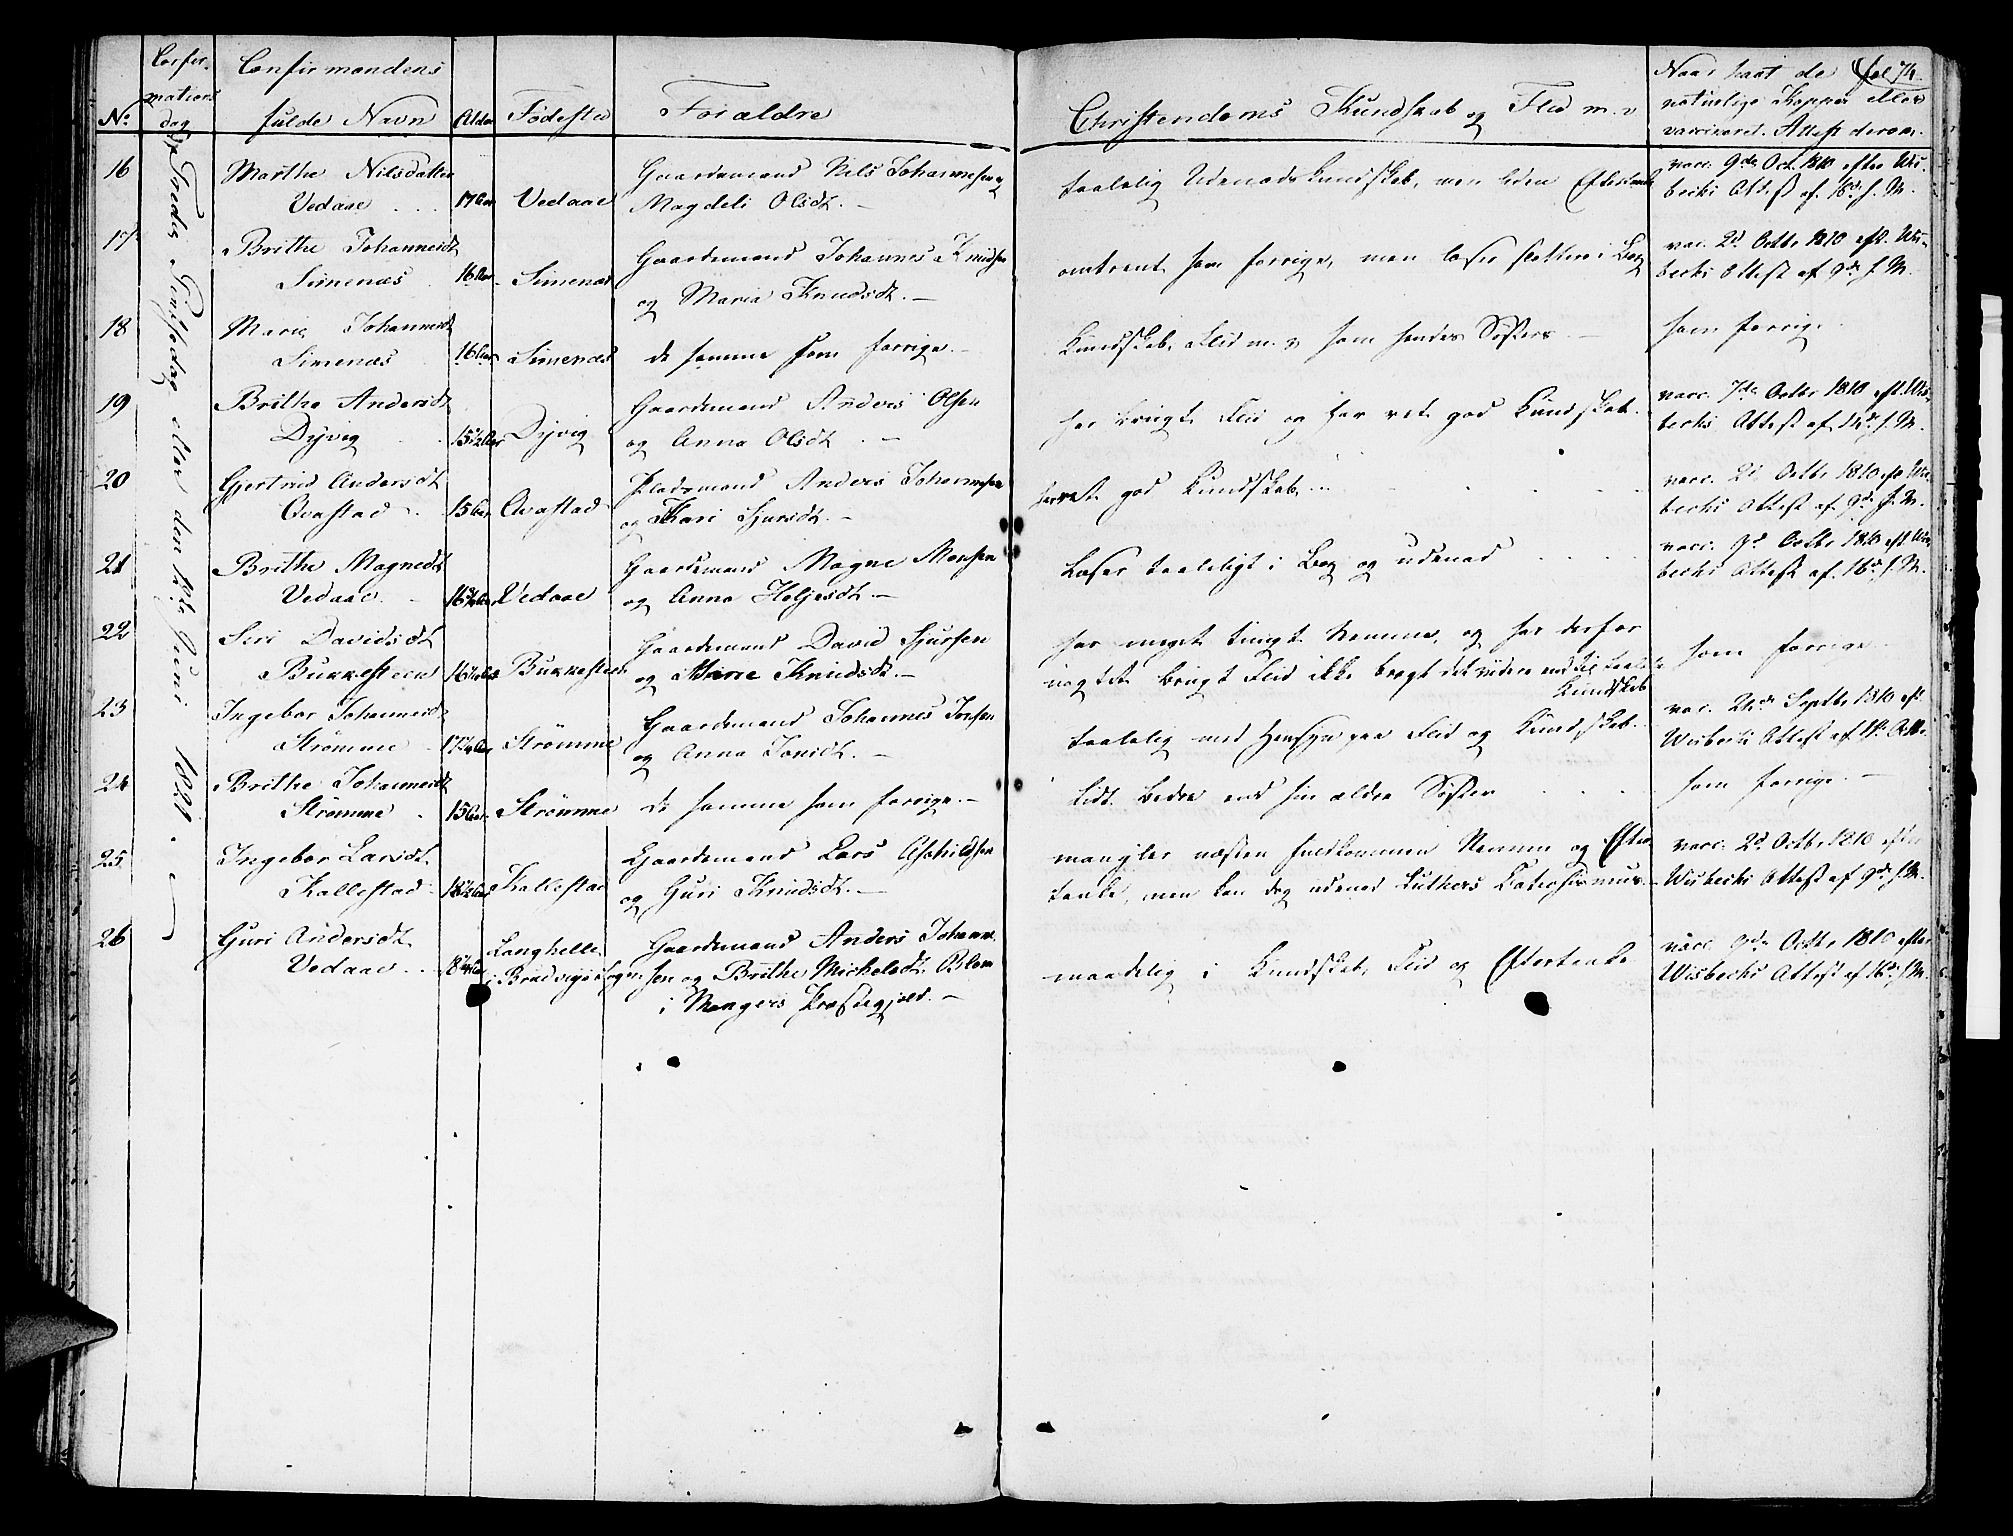 Confir-
mations
dag
No
Confirmandens
fulde Navn
Alder
Fødested
Forældre
Christendoms Kundskab og Flid m. v
Naar havt de fol 74.
naturlige Kopper eller
vaccineret. Attest derom.
Tredie Pintsedag eller den 12te Juni 1821.
16
Marthe Nilsdatter
Vedaae
17 Aar
Vedaae
Gaardemand Nils Johannesen
Magdeli Olsdt. —
taalelig Udenadskundskab, men liden Eftertanke
vacc. 9de Oct. 1810 efter Wis-
bechs Attest af 16de s. M.
17
Brithe Johannesdt
Simenæs
16 Aar
Simenæs
Gaardemand Johannes Knudsen
og Maria Knudsdt. —
omtrent som forrige, men læser slettere i Bog
vac. 2d Octbr 1810 eft. Wis-
bechs Attest af 9de s. M.
18
Marie Johannesdt
Simenæs
16 Aar
Simenæs
de samme som forrige. —
Kundskab, Flid m. v som hendes Søsters —
som forrige
19
Brithe Andersdt
Dyvig
15½ Aar
Dyvig
Gaardemand Anders Olsen
og Anna Olsdt. —
har brugt Flid og har ret god Kundskab.
vacc. 7de Octbr 1810 eft. Wis-
bechs Attest af 14d s. M.
20
Gjertrud Andersdt
Qvastad
15 Aar
Qvastad
Pladsmand Anders Johannesen
og Kari Sjursdt. —
har ret god Kundskab
vacc. 2d Octbr 1810 eft Wis-
bechs Attest af 9de s. M.
21
Brithe Magnedt
Vedaae
16¾ Aar
Vedaae
Gaardemand Magne Monsen
og Anna Heljesdt —
Læser taaleligt i Bog og udenad
vacc. 9d Octbr 1810 eft Wis-
bechs Attest af 16d s. M.
22
Siri Davidsdt
Bukkesteen
16½ Aar
Bukkesteen
Gaardemand David Sjursen
og Marie Knudsdt. —
har meget tungt Nemme, og har derfor
uagtet brugt Flid ikke bragt det videre end til taalelig
Kundskab
som forrige
23
Ingebor Johannesdt
Strømme
17¼ Aar
Strømme
Gaardemand Johannes Jonsen
og Anna Jonsdt. —
taalelig med Hensyn paa Flid og Kundskab.
vac. 24de Septbr 1810 eft
Wisbechs Attest af 1ste Octbr.
24
Brithe Johannesdt
Strømme
15 Aar
Strømme
de samme som forrige. —
lidt bedre end sin ældre Søster
som forrige. —
25
Ingebor Larsdt
Kallestad
18½ Aar
Kallestad
Gaardemand Lars Aschildsen
og Guri Knudsdt. —
mangler næsten fuldkommen Nemme og Efter
tanke, men kan dog udenad Luthers Catechismus. —
vacc. 2d Octbr 1810 efter
Wisbechs Attest af 9de s. M.
26
Guri Andersdt
Vedaae
18¼ Aar
Langhelle
i Bradvigs Sogn
Gaardemand Anders Johanne
sen og Brithe Michelsdt. Blom
i Mangers Præstegjeld. —
maadelig i Kundskab, Flid og Eftertanke
vacc. 9de Octbr 1810 efter
Wisbechs Attest af 16d s. M.